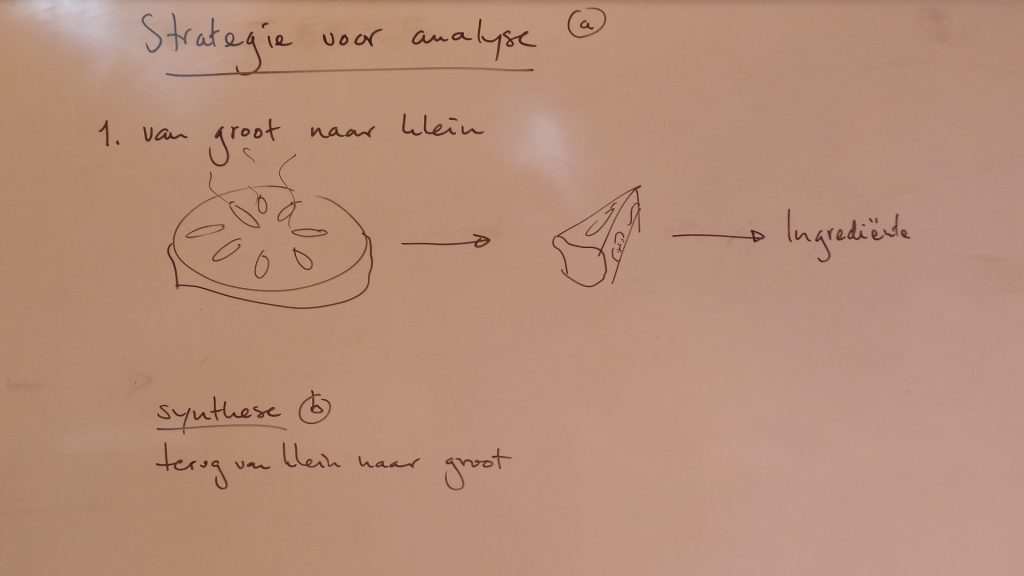 Strategie voor analyse (a)
1. van groot naar klein
Ingrediënte
synthese (b)
terug van klein naar groot